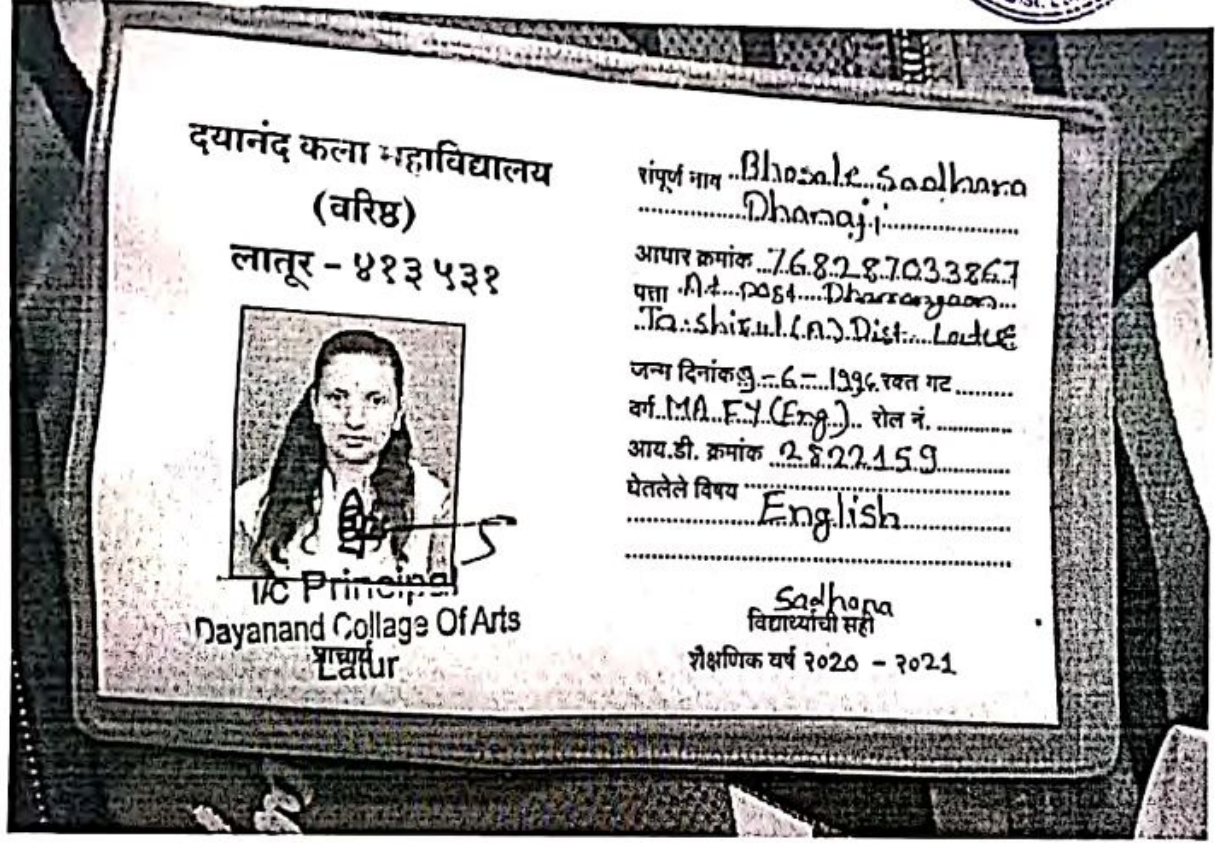 दयानंद कला महाविद्यालय
(वरिष्ठ)
लातूर - ४१३ ५३१
I/C Principal
Dayanand Collage Of Arts
प्राचार्य
Latur
संपूर्ण नाव Bhosale Sadhana
Dhanaji
आधार क्रमांक 768287033867
पत्ता At. post. Dhamangaon
Ta. Shirul (A.) Dist. Latur
जन्म दिनांक 9-6-1996 रक्त गट
वर्ग MA FY (Eng.) रोल नं.
आय.डी. क्रमांक 2822159
घेतलेले विषय
English
Sadhana
विद्यार्थ्याची सही
शैक्षणिक वर्ष २०२० - २०२१